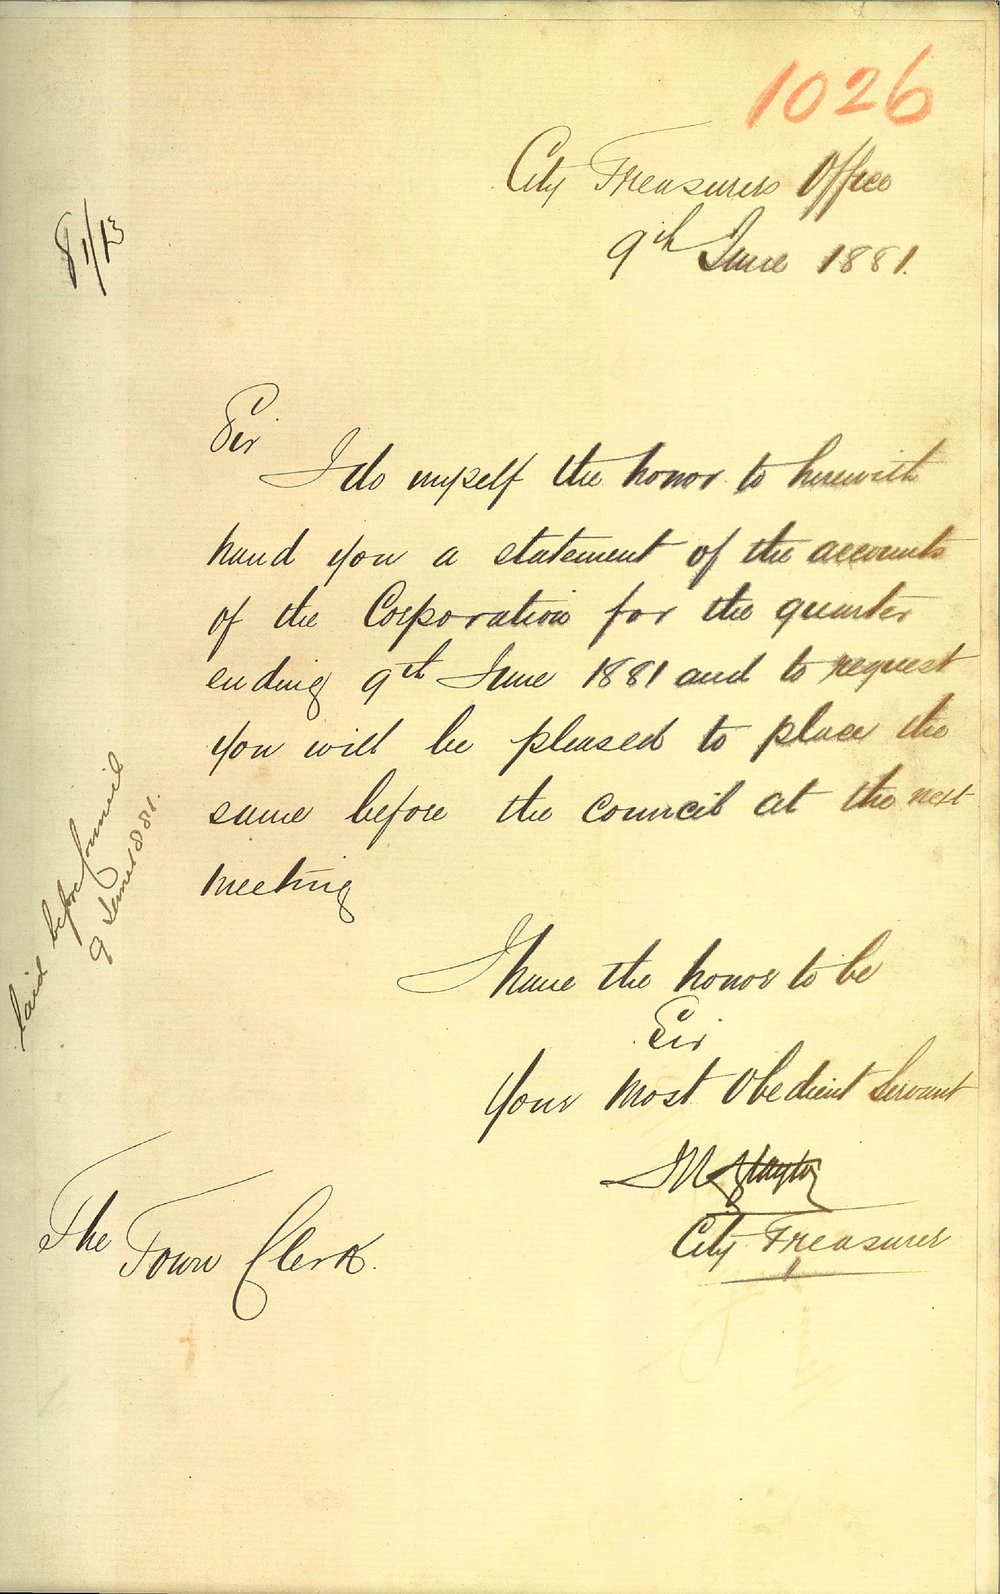 1026
City Treasurers Office
9th June 1881.
81/13
Sir
I do myself the honor to herewith
hand you a statement of the accounts
of the Corporation for the quarter
ending 9th June 1881 and to request
you will be pleased to place the
same before the council at the next
meeting
laid before Council
9 June 1881.
I have the honor to be
Sir
Your Most Obedient Servant
City Treasurer
The Town Clerk.